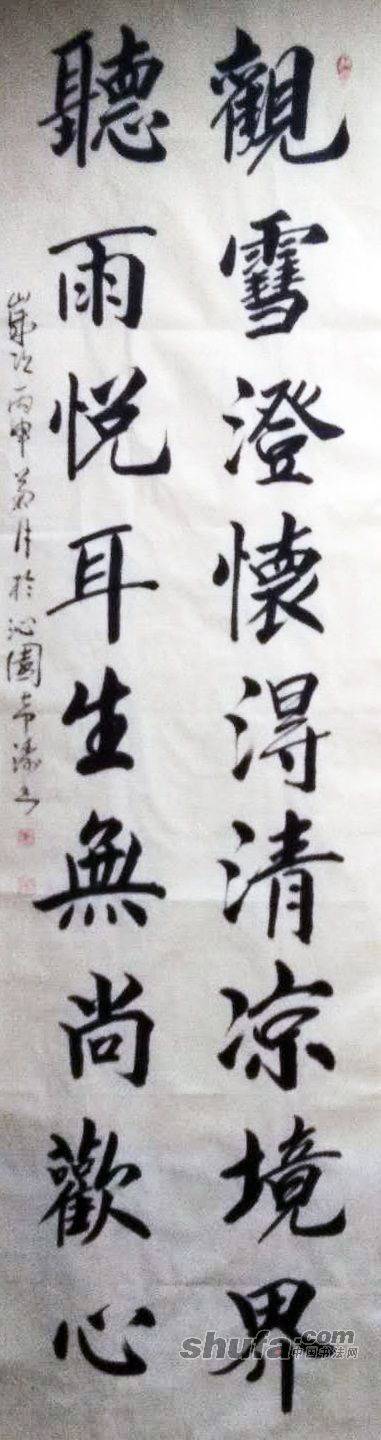 觀雪澄懷得清凉境界
聽雨悦耳生無尚歡心
歲次丙申荷月於沁園
shufa.com
中国书法网